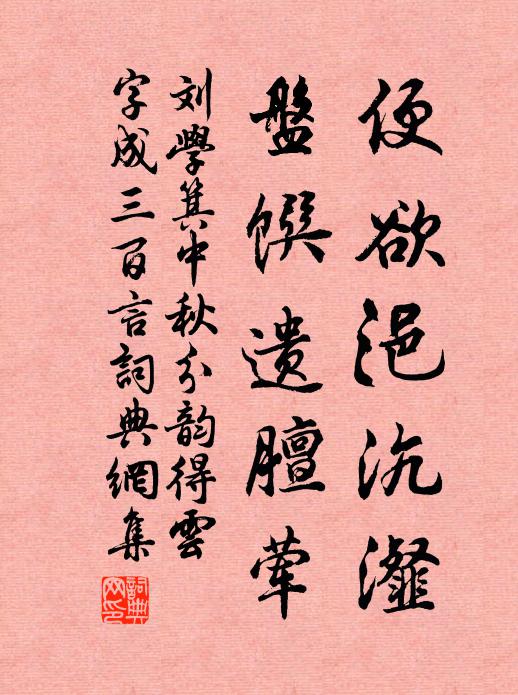 便欲浥沆瀣
盤饌遺膻葷
刘學箕中秋分韵得雲
字成三百言詞典網集
詞典网印